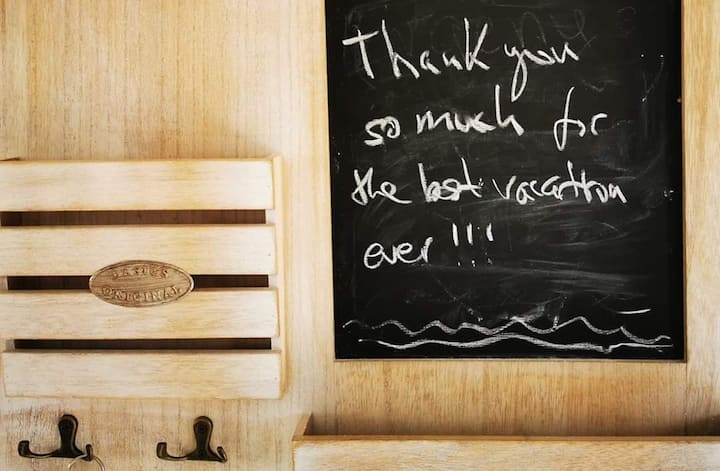 Thank you
so much for
the best vacation
ever!!!
BASICS
ORIGINAL